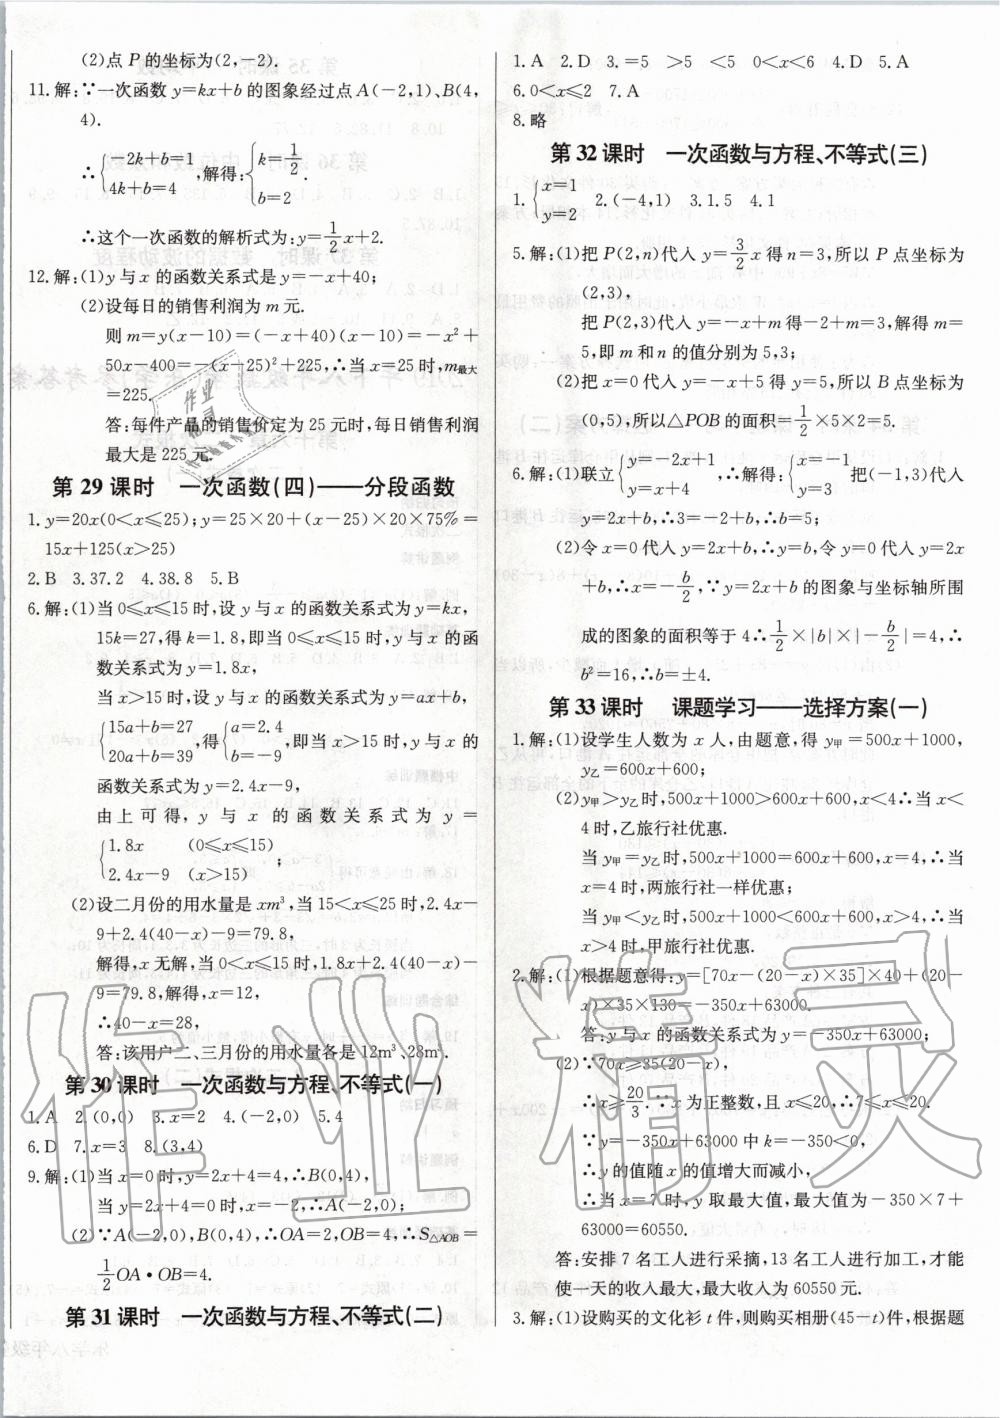 (2)点 P 的坐标为(2,-2).
11.解:∵一次函数 y=kx+b 的图象经过点 A(-2,1)、B(4,
4).
∴{-2k+b=1 4k+b=4,解得:{k=1/2. b=2
∴这个一次函数的解析式为:y=1/2x+2.
12.解:(1)y 与 x 的函数关系式是 y=-x+40;
(2)设每日的销售利润为 m 元.
则 m=y(x-10)=(-x+40)(x-10)=-x²+
50x-400=-(x-25)²+225,∴当 x=25 时,m最大
=225.
答:每件产品的销售价定为 25 元时,每日销售利润
最大是 225 元.
第 29 课时 一次函数(四)——分段函数
1.y=20x(0<x≤25);y=25×20+(x-25)×20×75%=
15x+125(x>25)
2.B 3.37.2 4.38.8 5.B
6.解:(1)当 0≤x≤15 时,设 y 与 x 的函数关系式为 y=kx,
15k=27,得 k=1.8,即当 0≤x≤15 时,y 与 x 的函
数关系式为 y=1.8x,
当 x>15 时,设 y 与 x 的函数关系式为 y=ax+b,
{15a+b=27 20a+b=39,得{a=2.4 b=-9,即当 x>15 时,y 与 x 的
函数关系式为 y=2.4x-9,
由上可得,y 与 x 的函数关系式为 y=
{1.8x (0≤x≤15) 2.4x-9 (x>15);
(2)设二月份的用水量是 xm³,当 15<x≤25 时,2.4x-
9+2.4(40-x)-9=79.8,
解得,x 无解,当 0<x≤15 时,1.8x+2.4(40-x)-
9=79.8,解得,x=12,
∴40-x=28,
答:该用户二、三月份的用水量各是 12m³、28m³.
第 30 课时 一次函数与方程、不等式(一)
1.A 2.(0,0) 3.x=2 4.(-2,0) 5.4
6.D 7.x=3 8.(3,4)
9.解:(1)当 x=0 时,y=2x+4=4,∴B(0,4),
当 y=2x+4=0 时,x=-2,∴A(-2,0);
(2)∵A(-2,0),B(0,4),∴OA=2,OB=4,∴S△AOB=
1/2OA·OB=4.
第 31 课时 一次函数与方程、不等式(二)
1.A 2.D 3.=5 >5 <5 0<x<6 4.D 5.A
6.0<x≤2 7.A
8.略
第 32 课时 一次函数与方程、不等式(三)
1.{x=1 y=2 2.(-4,1) 3.1.5 4.1
5.解:(1)把 P(2,n)代入 y=3/2x 得 n=3,所以 P 点坐标为
(2,3),
把 P(2,3)代入 y=-x+m 得-2+m=3,解得 m=
5,即 m 和 n 的值分别为 5,3;
(2)把 x=0 代入 y=-x+5 得 y=5,所以 B 点坐标为
(0,5),所以△POB 的面积=1/2×5×2=5.
6.解:(1)联立{y=-2x+1 y=-x+2 ∴解得:{x=-1 y=3 把(-1,3)代入
y=2x+b,∴3=-2+b,∴b=5;
(2)令 x=0 代入 y=2x+b,∴y=b,令 y=0 代入 y=2x
+b,∴x=-b/2,∵y=2x+b 的图象与坐标轴所围
成的图象的面积等于 4∴1/2×|b|×|-b/2|=4,∴
b²=16,∴b=±4.
第 33 课时 课题学习——选择方案(一)
1.解:(1)设学生人数为 x 人,由题意,得 y甲=500x+1000,
y乙=600x+600;
(2)y甲>y乙时,500x+1000>600x+600,x<4∴当 x<
4 时,乙旅行社优惠.
当 y甲=y乙时,500x+1000=600x+600,x=4,∴当
x=4 时,两旅行社一样优惠;
当 y甲<y乙时,500x+1000<600x+600,x>4,∴当
x>4 时,甲旅行社优惠.
2.解:(1)根据题意得:y=[70x-(20-x)×35]×40+(20-
x)×35×130=-350x+63000.
答:y 与 x 的函数关系式为 y=-350x+63000;
(2)∵70x≥35(20-x),
∴x≥20/3.∵x 为正整数,且 x≤20,∴7≤x≤20.
∵y=-350x+63000 中 k=-350<0,
∴y 的值随 x 的值增大而减小,
∴当 x=7 时,y 取最大值,最大值为-350×7+
63000=60550.
答:安排 7 名工人进行采摘,13 名工人进行加工,才能
使一天的收入最大,最大收入为 60550 元.
3.解:(1)设购买的文化衫 t 件,则购买相册(45-t)件,根据题
作业精灵